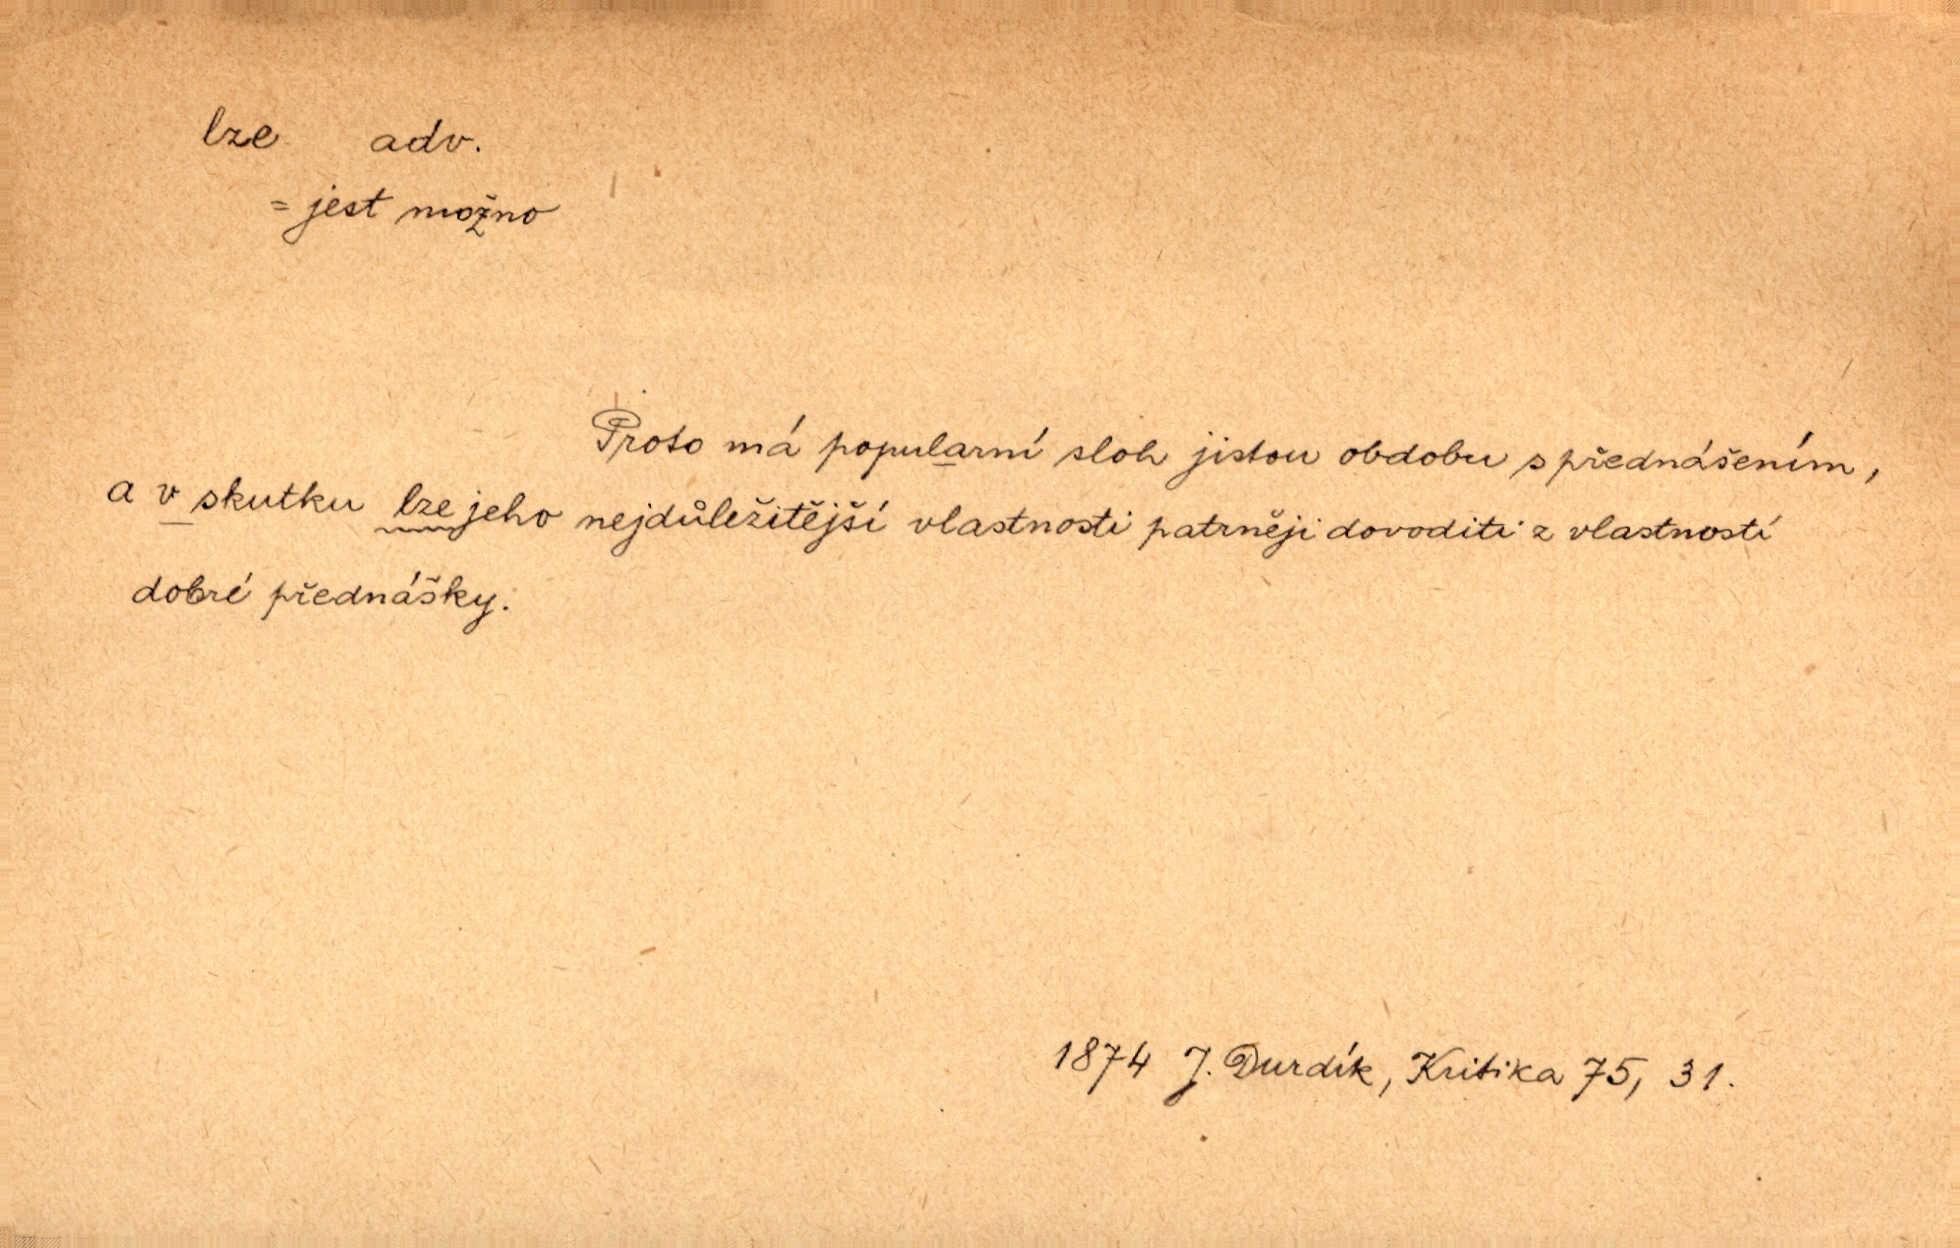 lze adv.
= jest možno
Proto má popularní sloh jistou obdobu s přednášením,
a v skutku lze jeho nejdůležitější vlastnosti patrněji dovoditi z vlastností
dobré přednášky.
1874 J. Durdík, Kritika 75, 31.